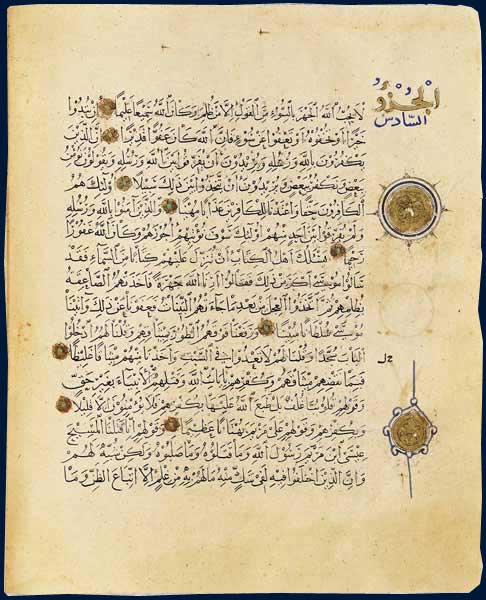 الجزؤ
السادس
لا يحب الله الجهر بالسوء من القول إلا من ظلم وكان الله سميعا عليما إن تبدوا
خيرا أو تخفوه أو تعفوا عن سوء فإن الله كان عفوا قديرا إن الذين
يكفرون بالله ورسله ويريدون أن يفرقوا بين الله ورسله ويقولون نؤمن
ببعض ونكفر ببعض ويريدون أن يتخذوا بين ذلك سبيلا أولئك هم
الكافرون حقا وأعتدنا للكافرين عذابا مهينا والذين آمنوا بالله ورسله
ولم يفرقوا بين أحد منهم أولئك سوف نؤتيهم أجورهم وكان الله غفورا
رحيما يسئلك أهل الكتاب أن تنزل عليهم كتابا من السماء فقد
سألوا موسى أكبر من ذلك فقالوا أرنا الله جهرة فأخذتهم الصاعقة
بظلمهم ثم اتخذوا العجل من بعد ما جاءتهم البينات فعفونا عن ذلك وآتينا
موسى سلطانا مبينا ورفعنا فوقهم الطور بميثاقهم وقلنا لهم ادخلوا
الباب سجدا وقلنا لهم لا تعدوا في السبت وأخذنا منهم ميثاقا غليظا
فبما نقضهم ميثاقهم وكفرهم بآيات الله وقتلهم الأنبياء بغير حق
وقولهم قلوبنا غلف بل طبع الله عليها بكفرهم فلا يؤمنون إلا قليلا
وبكفرهم وقولهم على مريم بهتانا عظيما وقولهم إنا قتلنا المسيح
عيسى ابن مريم رسول الله وما قتلوه وما صلبوه ولكن شبه لهم
وإن الذين اختلفوا فيه لفي شك منه ما لهم به من علم إلا اتباع الظن وما